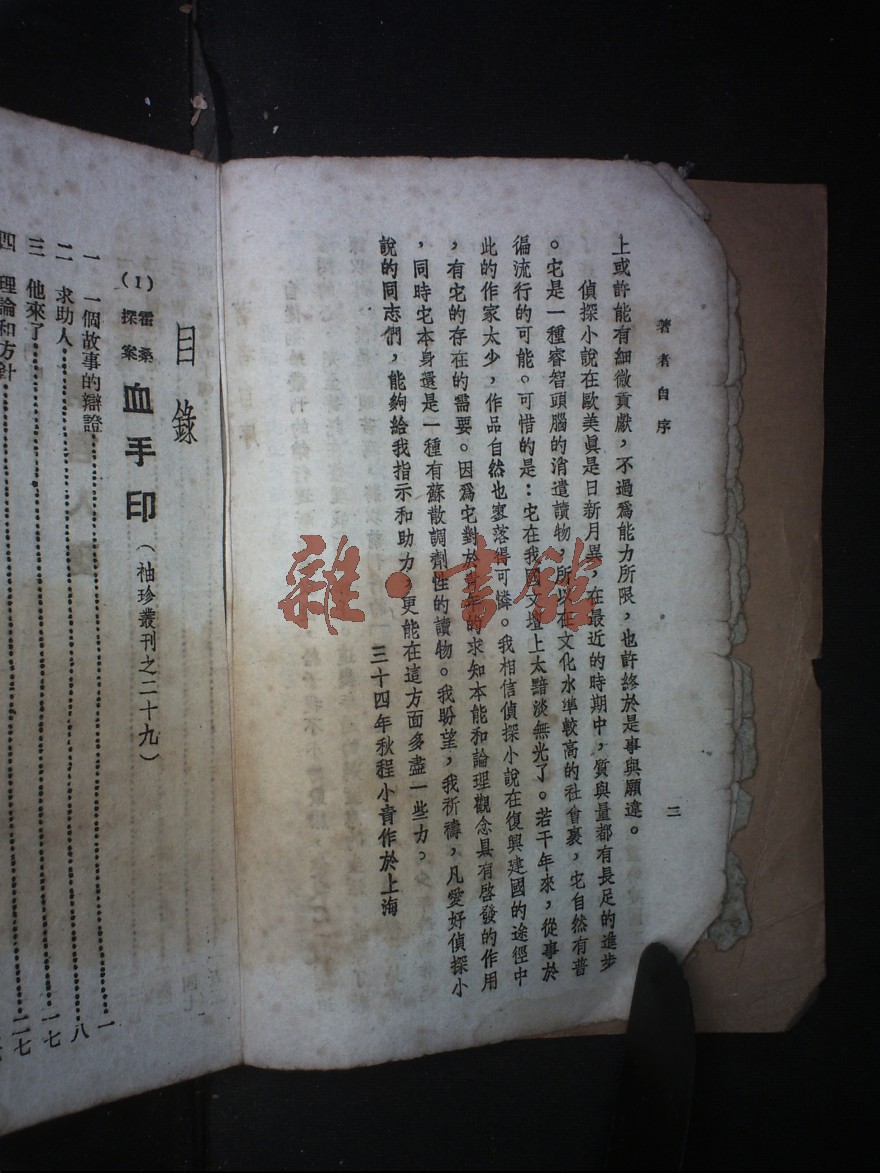 著者自序
三
上或許能有細微貢獻，不過爲能力所限，也許終於是事與願違。
偵探小說在歐美眞是日新月異，在最近的時期中，質與量都有長足的進步
。它是一種睿智頭腦的消遣讀物，所以在文化水準較高的社會裏，它自然有普
徧流行的可能。可惜的是：它在我國文壇上太黯淡無光了。若干年來，從事於
此的作家太少，作品自然也寥落得可憐。我相信偵探小說在復興建國的途徑中
，有它的存在的需要。因爲它對於的求知本能和論理觀念具有啓發的作用
，同時它本身還是一種有蘇散調劑性的讀物。我盼望，我祈禱，凡愛好偵探小
說的同志們，能夠給我指示和助力，更能在這方面多盡一些力。
三十四年秋程小青作於上海
目錄
(1) 霍桑探案 血手印（袖珍叢刊之二十九）
一 一個故事的辯證……一
二 求助人……八
三 他來了……一七
四 理論和方針……二七
雜·書館